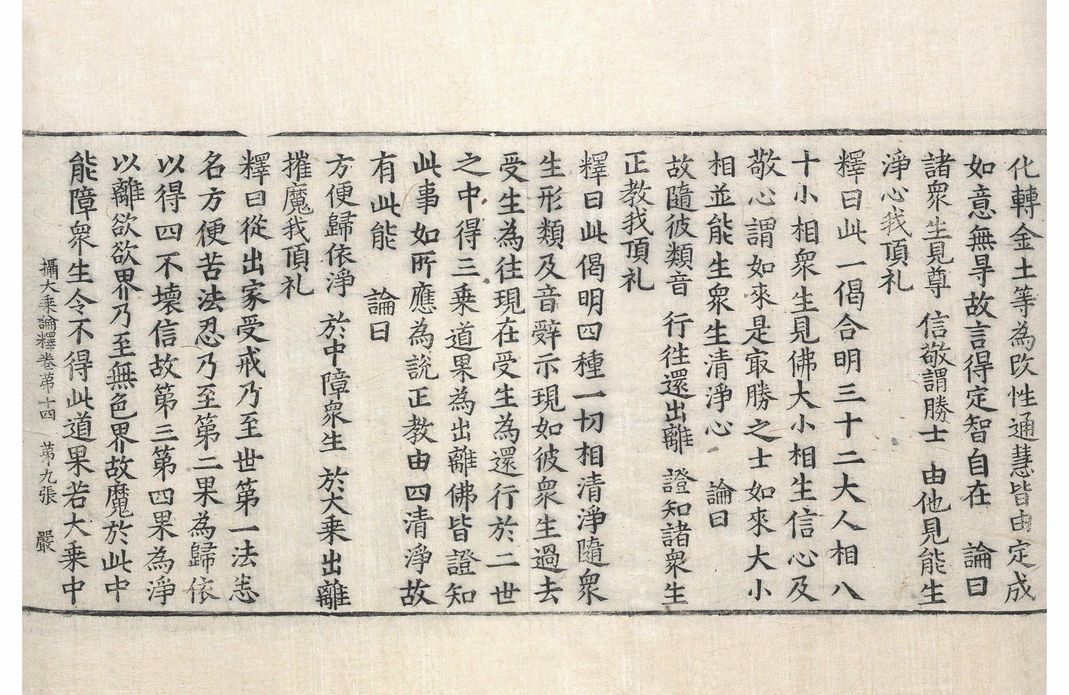 化轉金土等為改性通慧皆由定成
如意無㝵故言得定智自在　論曰
諸衆生見尊　信敬謂勝士　由他見能生
淨心我頂礼
釋曰此一偈合明三十二大人相八
十小相衆生見佛大小相生信心及
敬心謂如來是㝡勝之士如來大小
相並能生衆生清淨心　論曰
故隨彼類音　行往還出離　證知諸衆生
正教我頂礼
釋曰此偈明四種一切相清淨隨衆
生形類及音辝示現如彼衆生過去
受生為往現在受生為還行於二世
之中得三乗道果為出離佛皆證知
此事如所應為說正教由四清淨故
有此能　論曰
方便歸依淨　於中障衆生　於大乗出離
摧魔我頂礼
釋曰從出家受戒乃至世第一法悉
名方便苦法忍乃至第二果為歸依
以得四不壞信故第三第四果為淨
以離欲欲界乃至無色界故魔於此中
能障衆生令不得此道果若大乗中
攝大乗論釋卷苐十四　苐九張　嚴